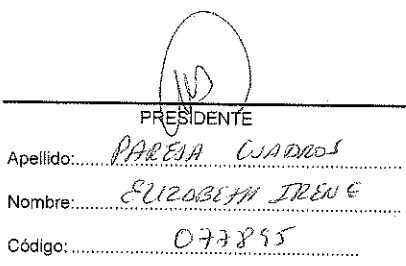 PRESIDENTE
Apellido: PAREJA CUADROS
Nombre: ELIZABETH IRENE
Código: 077895